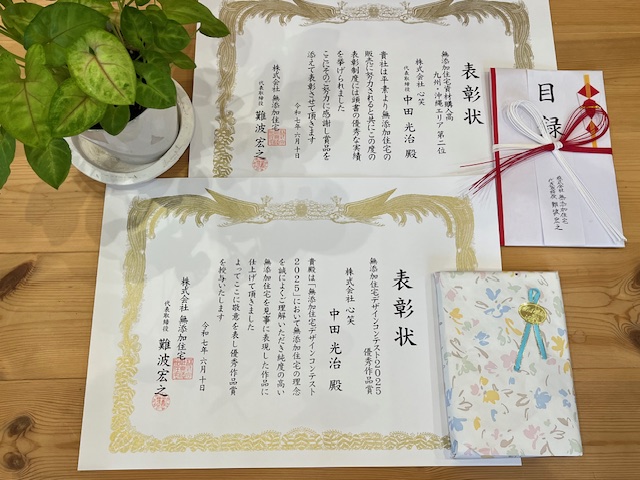 表彰状
無添加住宅資材購入高
九州・沖縄エリア 第二位
株式会社 心笑
代表取締役 中田 光治 殿
貴社は平素より無添加住宅の
販売に努力されると共にこの度の
表彰制度には頭書の優秀な実績
を挙げられました
ここにそのご努力に感謝し賞品を
添えて表彰させて頂きます
令和七年六月十日
株式会社 無添加住宅
代表取締役 難波宏之
目録
株式会社 無添加住宅
代表取締役 難波宏之
表彰状
無添加住宅デザインコンテスト2025
優秀作品賞
株式会社 心笑
中田 光治 殿
貴殿は「無添加住宅デザインコンテスト
2025」において無添加住宅の理念
を誠によくご理解いただき純度の高い
無添加住宅を見事に表現した作品に
仕上げて頂きました
よってここに敬意を表し優秀作品賞
を授与いたします
令和七年六月十日
株式会社 無添加住宅
代表取締役 難波宏之